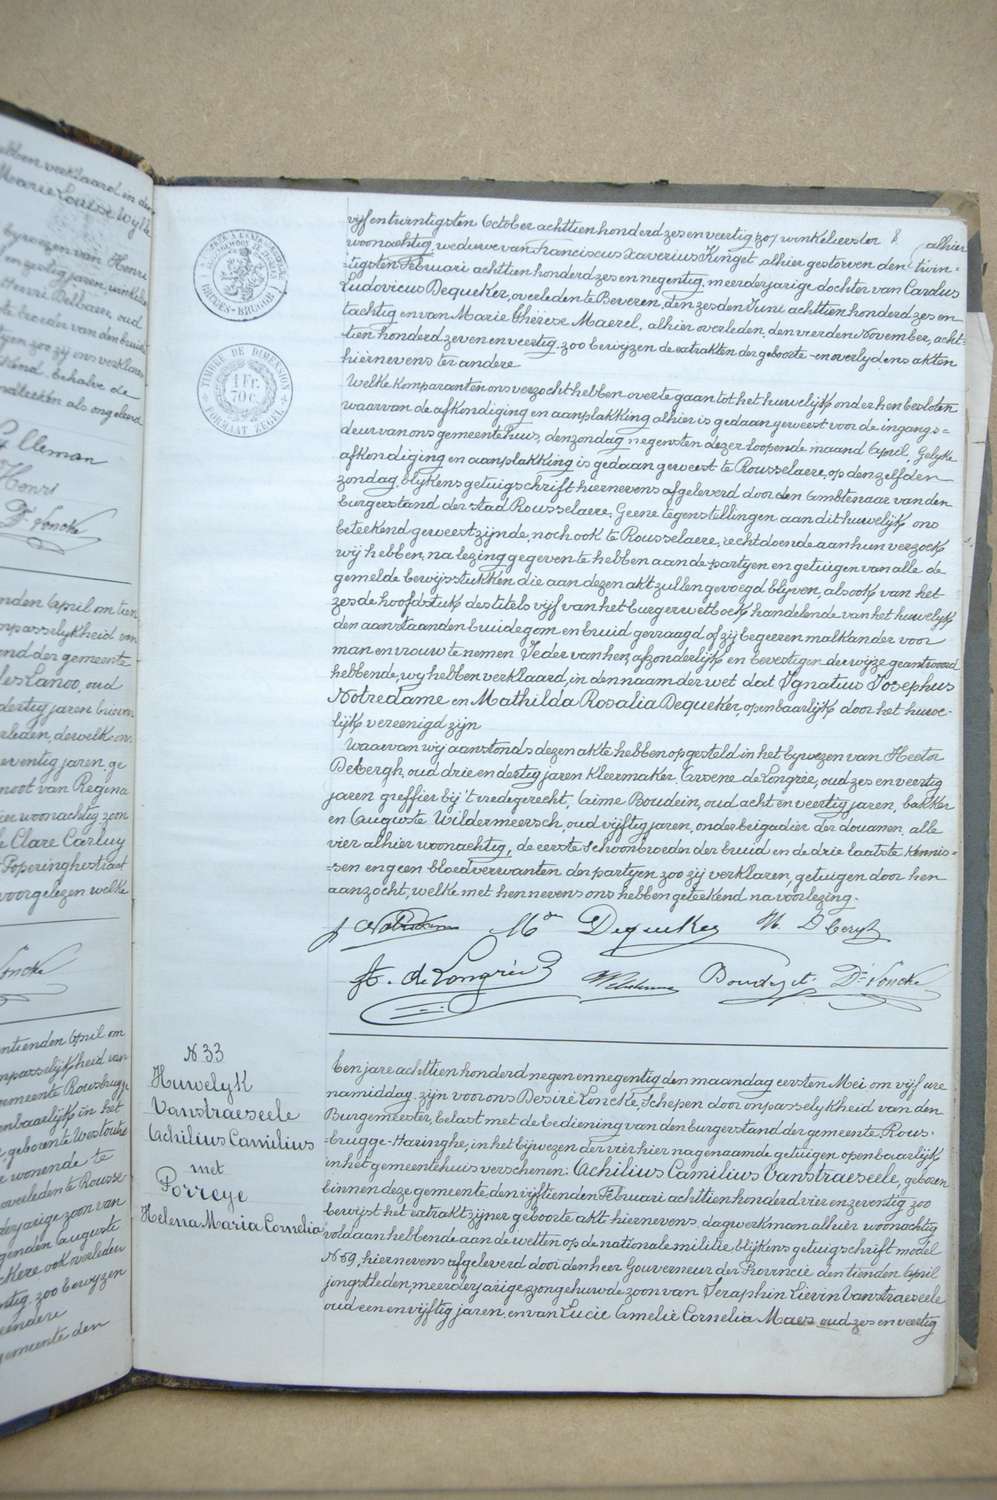 bben verklaard in den
Marie Louise Wyll
bijwezen van Henri
en zestig jaren, winkelier
Henri Bellaan, oud
te broeder van den bruide
tyen zoo zij ons verklaren
kend behalve de
nalteeken als ongeleerd
Gelleman
Henri
Ds Loncke
nden April om tien
npasselykheid van
and der gemeente
les Lanoo, oud
dertig jaren
rleden, dewelk on
eventig jaren ge
noot van Regina
ier woonachtig zoon
e Clare Carluy
Poperinghestraat
voorgelezen welke
Loncke
ntienden April om
npasselykheid van
gemeente Rousbrugge
enbaarlijk in het
geboorte Westoutre
e wonende te
overleden te Rousse
derjarige zoon van
genden Auguste
kere ook overleden
ntig, zoo bewyzen
eendere
gemeente den
BRUGES-BRUGGE
TIMBRE DE DIMENSION
1 Fr.
70 c.
FORMAAT ZEGEL
vijf en twintigsten October achttien honderd zes en veertig zoo/ winkelierster / alhier
woonachtig, weduwe van Franciscus Xaverius Kinget, alhier gestorven den twin-
tigsten Februari achttien honderd zes en negentig, meerderjarige dochter van Carolus
Ludovicus Dequeker, overleden te Beveren, den zesden Juni achttien honderd zes en
tachtig en van Marie Thérèse Maerel, alhier overleden, den vierden November, acht-
tien honderd zeven en veertig, zoo bewijzen de extrakten der geboorte en overlydens akten
hiernevens ter andere
Welke komparanten ons verzocht hebben over te gaan tot het huwelijk onder hen besloten
waarvan de afkondiging en aanplakking alhier is gedaan geweest voor de ingangs=
deur van ons gemeentehuis, den zondag negensten dezer loopende maand April, Gelyke
afkondiging en aanplakking is gedaan geweest te Rousselaere, op den zelfden
zondag, blijkens getuigschrift hiernevens afgeleverd door den Ambtenaar van den
burgerstand der stad Rousselaere, Geene tegenstellingen aan dit huwelijk ons
beteekend geweest zijnde, noch ook te Rousselaere, recht doende aan hun verzoek
wij hebben, na lezing gegeven te hebben aan de partyen en getuigen van alle de
gemelde bewijsstukken die aan dezen akt zullen gevoegd blijven, alsook van het
zesde hoofdstuk des titels vijf van het burgerwetboek handelende van het huwelyk
den aanstaanden bruidegom en bruid gevraagd of zij begeeren malkander voor
man en vrouw te nemen Ieder van hen, afzonderlijk en bevestigender wijze geantwoord
hebbende, wij hebben verklaard, in den naam der wet dat Ignatius Josephus
Notredame en Mathilda Rosalia Dequeker, openbaarlijk door het huwe-
lijk vereenigd zijn
Waarvan wij aanstonds dezen akte hebben opgesteld in het bijwezen van Hector
Debergh, oud drie en dertig jaren kleermaker Arsène de Longrée, oud zes en veertig
jaren greffier bij 't vredegerecht, Aimé Boudein, oud acht en veertig jaren, bakker
en Auguste Wildermeersch, oud vijftig jaren, onderbrigadier der douanen, alle
vier alhier woonachtig, de eerste schoonbroeder der bruid en de drie laatste kennis-
sen en geen bloedverwanten der partyen zoo zij verklaren, getuigen door hen
aanzocht, welke met hen nevens ons hebben geteekend na voorlezing.
Mde Dequeker H. Debergh
A. de Longrée Ds Loncke
N 33
Huwelyk
Vanstraeseele
Achilius Camilius
met
Porreye
Helena Maria Cornelia
Ten jare achttien honderd negen en negentig den maandag eersten Mei om vijf ure
namiddag, zijn voor ons Desiré Loncke, Schepen door onpasselykheid van den
Burgemeester, belast met de bediening van den burgerstand der gemeente Rous-
brugge-Haringhe, in het bijwezen der vier hier nagenaamde getuigen openbaarlijk
in het gemeentehuis verschenen: Achilius Camilius Vanstraeseele, geboren
binnen deze gemeente den vijftienden Februari achttien honderd vier en zeventig zoo
bewijst het extrakt zijner geboorte akte hiernevens, dagwerkman alhier woonachtig
voldaan hebbende aan de wetten op de nationale militie, blijkens getuigschrift model
N 59, hiernevens afgeleverd door den heer Gouverneur der Provincie den tienden April
jongstleden, meerderjarige zongehuwde zoon van Seraphin Lievin Vanstraeseele
oud een en vijftig jaren, en van Lucie Amelie Cornelia Maes oud zes en veertig